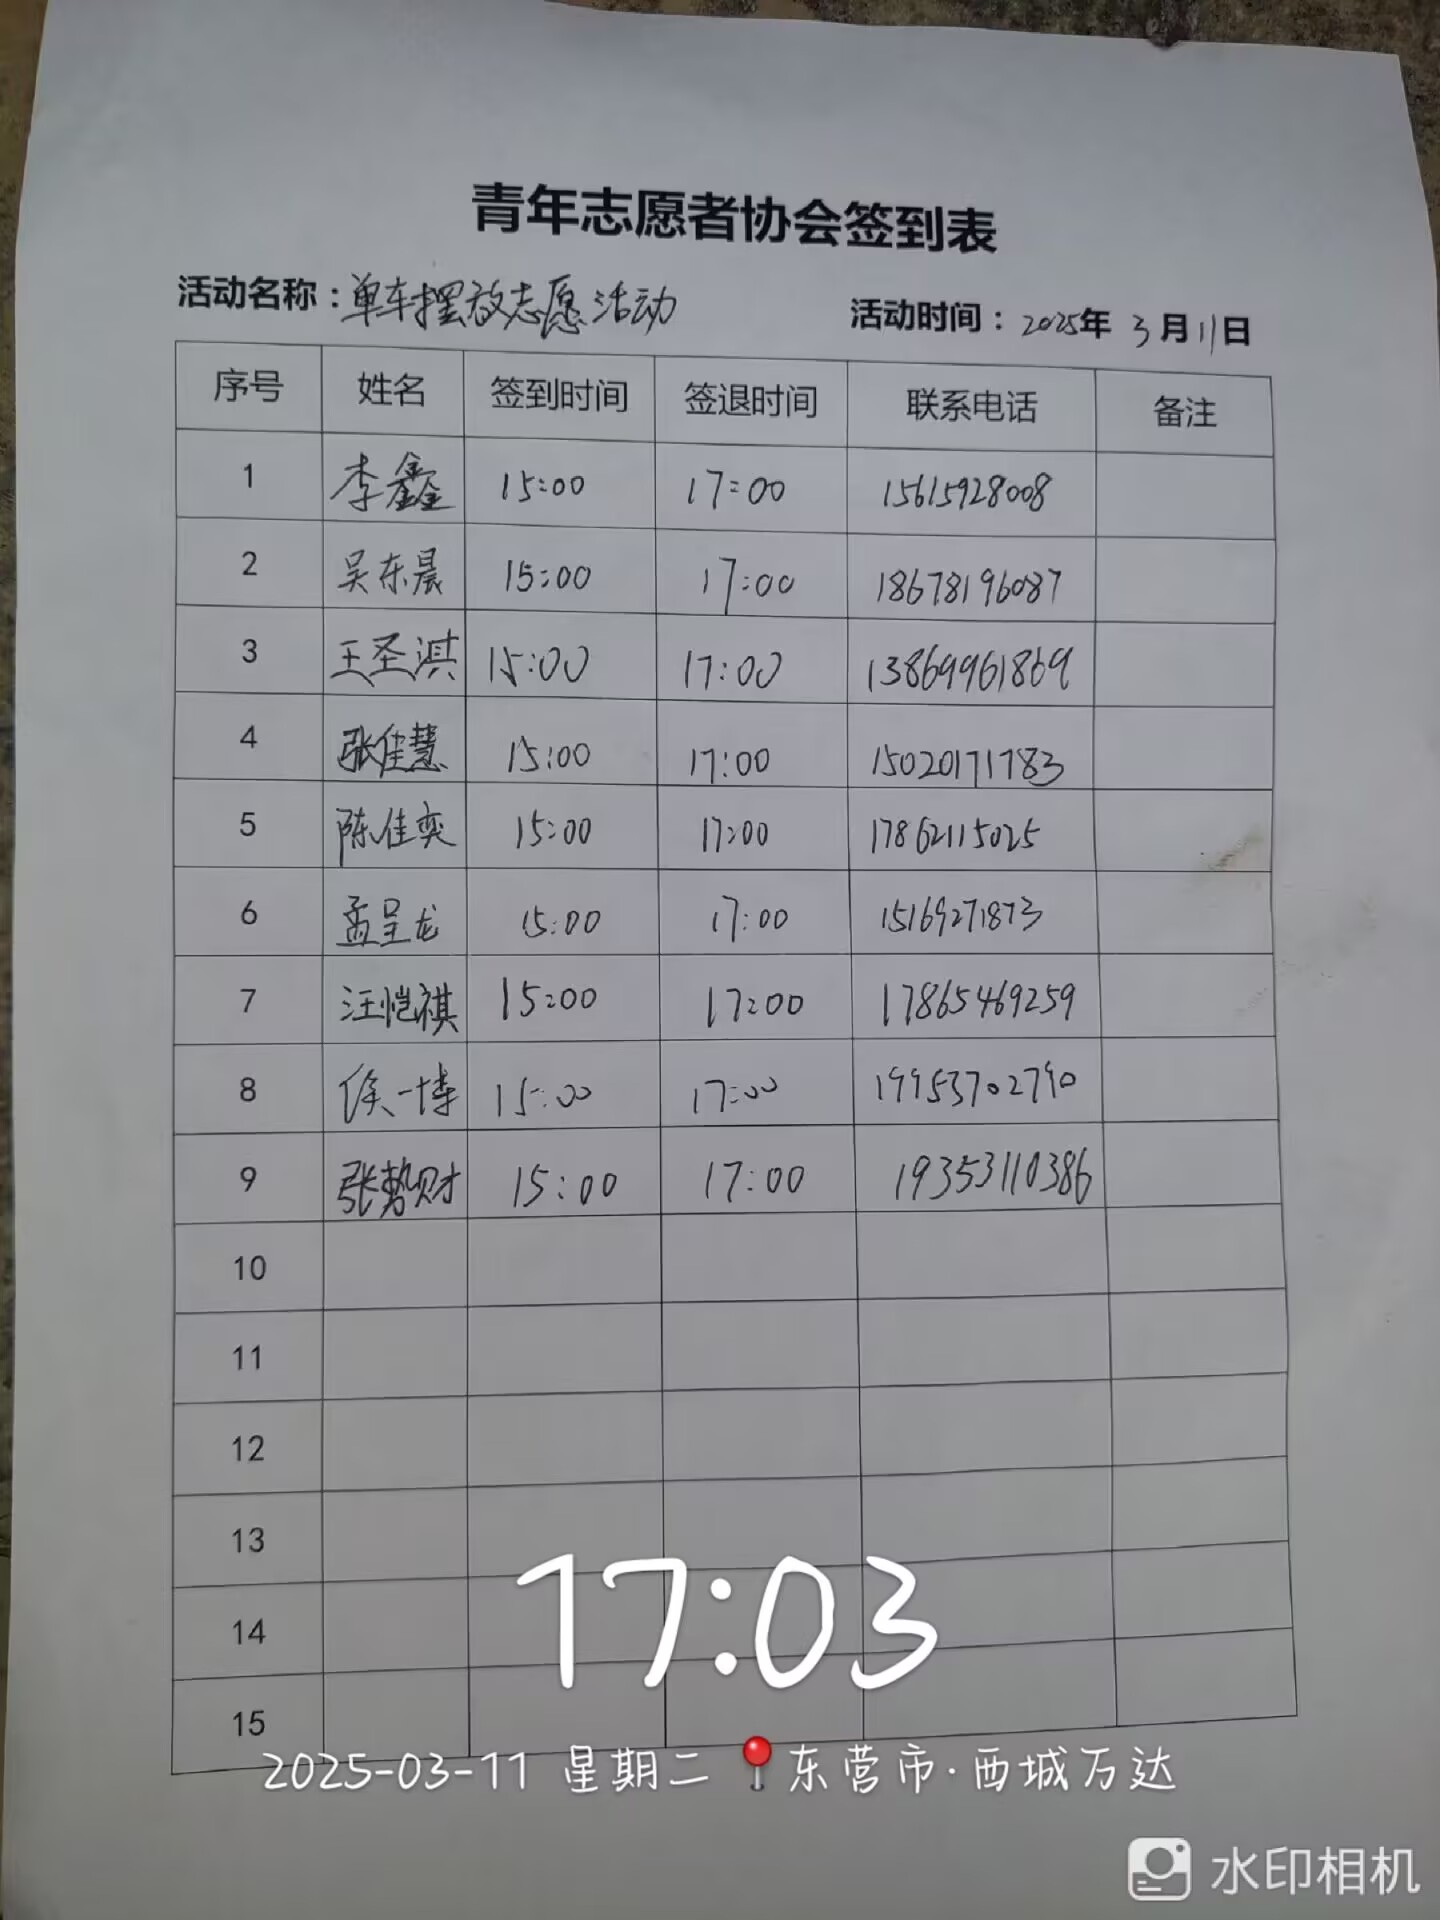 青年志愿者协会签到表
活动名称：单车摆放志愿活动 活动时间：2025年 3月11日
序号 姓名 签到时间 签退时间 联系电话 备注
1 李鑫 15:00 17:00 15615928008
2 吴东晨 15:00 17:00 18678196087
3 王圣淇 15:00 17:00 13869961869
4 张佳慧 15:00 17:00 15020171783
5 陈佳奕 15:00 17:00 17862115025
6 孟呈龙 15:00 17:00 15169271873
7 汪恺祺 15:00 17:00 17865469259
8 侯一博 15:00 17:00 19953702790
9 张势财 15:00 17:00 19353110386
10
11
12
13
14
15
17:03
2025-03-11 星期二 东营市·西城万达
水印相机